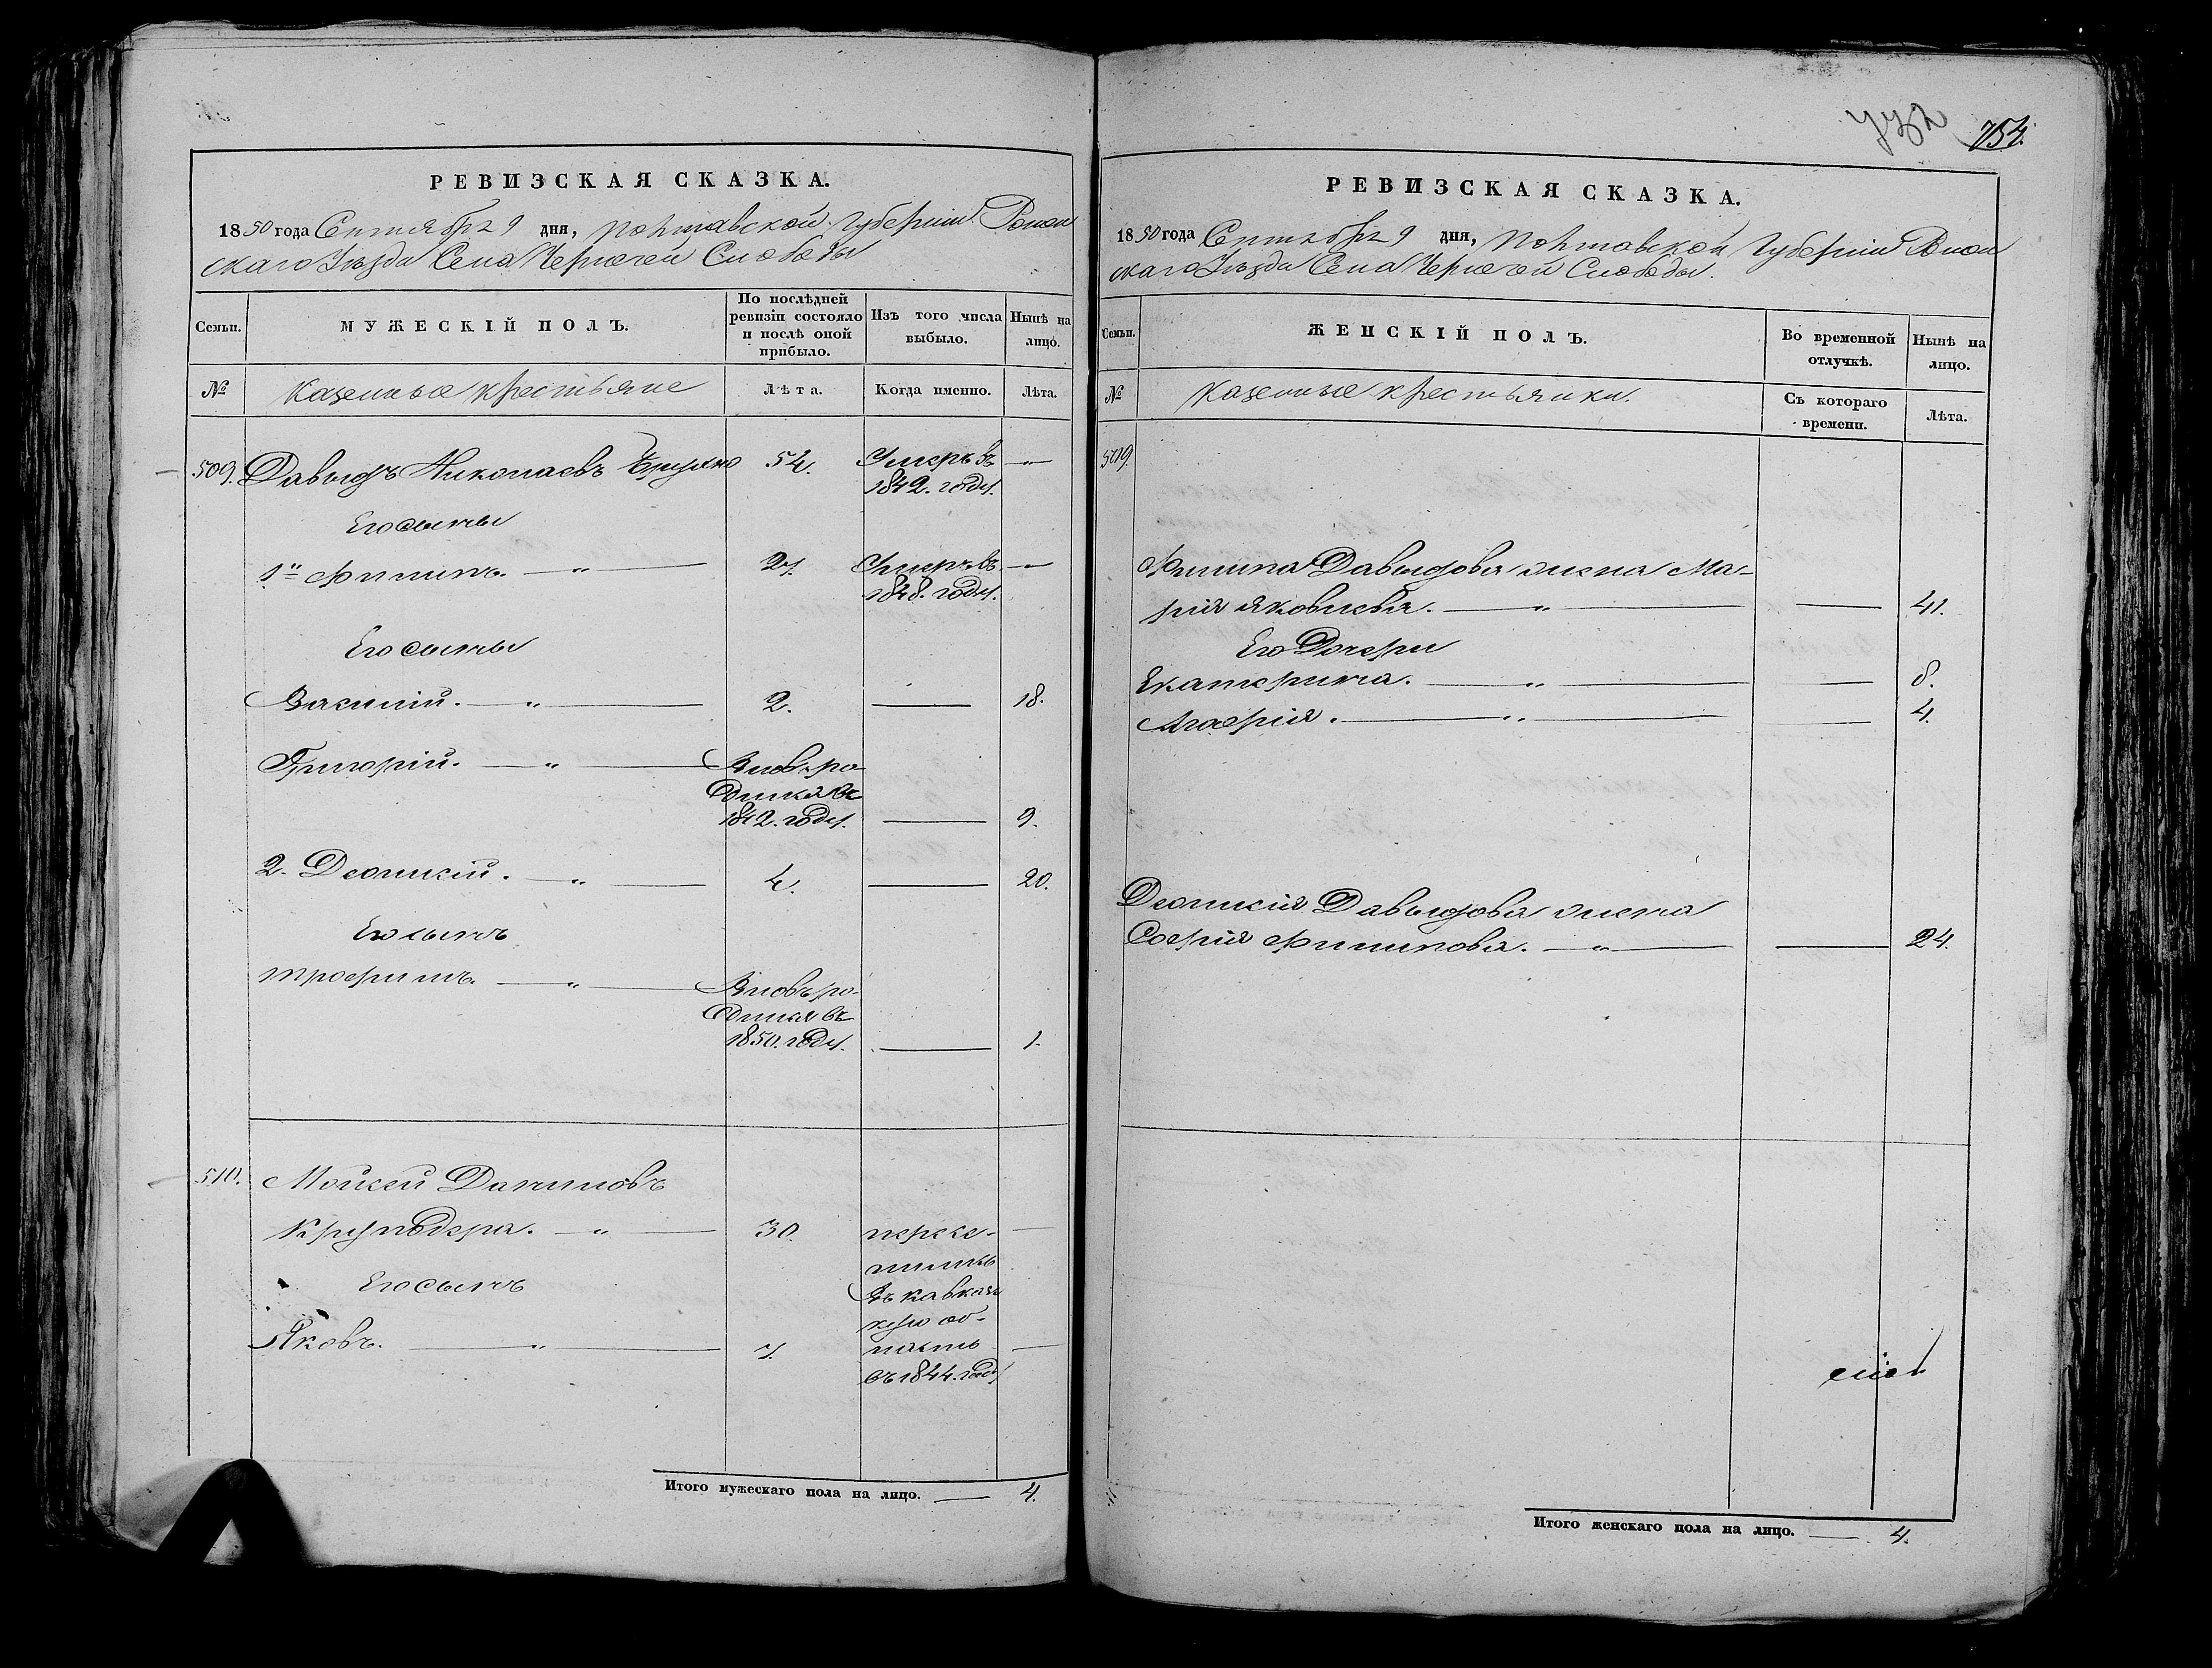 754.
РЕВИЗСКАЯ СКАЗКА.
1850 года Сентября 9 дня, Полтавской Губерніи Ромен
скаго Уѣзда Села Чернечей Слободы
Семьи.
МУЖЕСКІЙ ПОЛЪ.
По послѣдней ревизіи состояло и послѣ оной прибыло.
Изъ того числа выбыло.
Нынѣ на лицо.
№
Казенные крестьяне
Лѣта.
Когда именно.
Лѣта.
509. Давыдъ Николаевъ 54. Умеръ въ —
1842. году.
Его сыны
1й Филипъ. — " — Умеръ въ —
1848. году.
Его сыны
Василий. — " — 2. — 18.
Григорій. — " — Вновь ро-
дился въ
1842. году. — 9.
2. Леонтий. — " — 4. — 20.
Его сынъ
Трофимъ. — " — Вновь ро-
дился въ
1850. году. — 1.
510. Мойсей Даниловъ
Круподера. — " — 30. пересе- —
лились
Въ Кавказ
кую об-
Яковъ. — " — 7. ласть —
въ 1844. году
Итого мужескаго пола на лицо. — 4.
РЕВИЗСКАЯ СКАЗКА.
1850 года Сентября 9 дня, Полтавской Губерніи Ромен
скаго Уѣзда Села Чернечей Слободы.
Семьи.
ЖЕНСКІЙ ПОЛЪ.
Во временной отлучкѣ.
Нынѣ на лицо.
№
Казенные крестьянки.
Съ котораго времени.
Лѣта.
509.
Филипа Давыдова жена Ма-
рія Яковлева. — " — — 41.
Его Дочери
Екатерина. — " — — 8.
Агафія. — " — — 4.
Леонтія Давыдова жена
Софія Филипова. — " — — 24.
Итого женскаго пола на лицо. — 4.